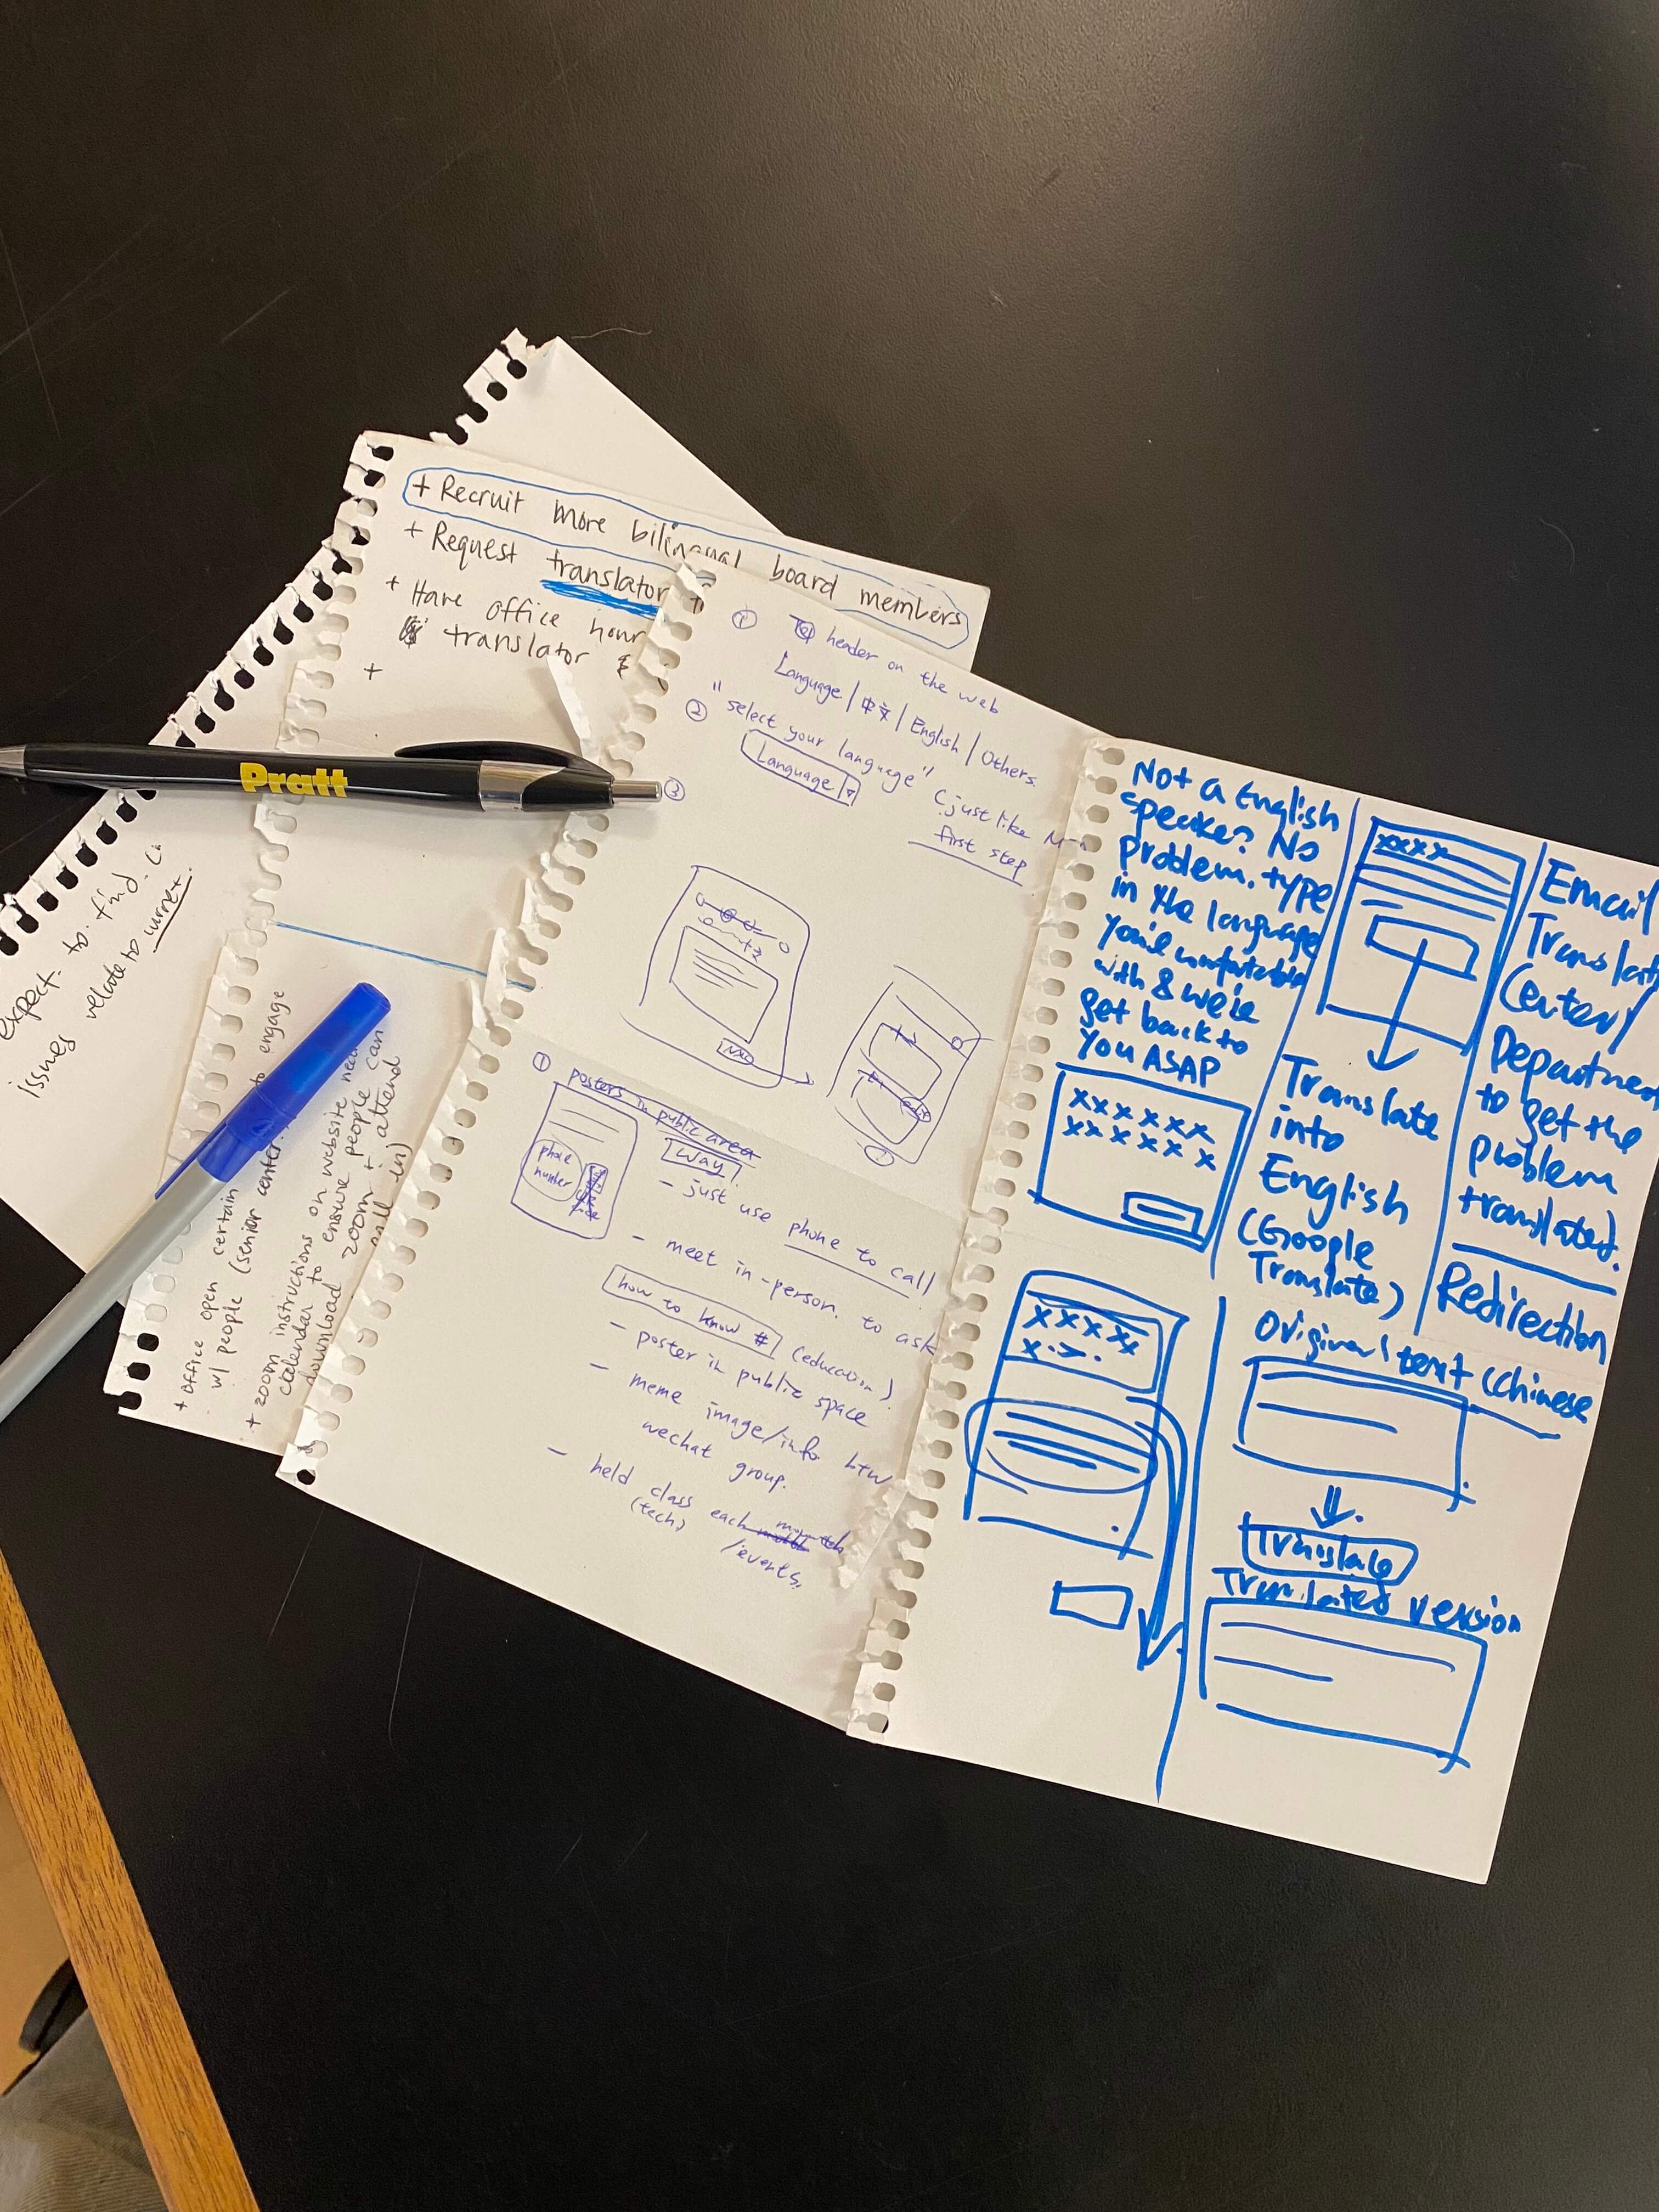 + Recruit more bilingual board members
+ Request translator
+ Have office hour
translator
+
Pratt
expect to find
issues relate to
+ office open certain to engage
w/ people (senior center
+ zoom instructions on website
calendar to ensure people can
download zoom + attend
call in)
① header on the web
Language / 中文 / English / Others
② "select your language" (just like
Language
first step
③
① posters in public area
phone
number
way
- just use phone to call
- meet in-person. to ask
how to know # (education)
- poster in public space
- meme image/info btw
wechat group.
- held class each
(tech)
/events.
Not a English
speaker? No
problem. type
in the language
with & we're
get back to
you ASAP
xxxxxx
xxxxxx
xxxx
Translate
into
English
(Google
Translate)
Email
Center/
to get the
problem
translated.
Redirection
xxxxx
Original text (Chinese
Translate
Translated version